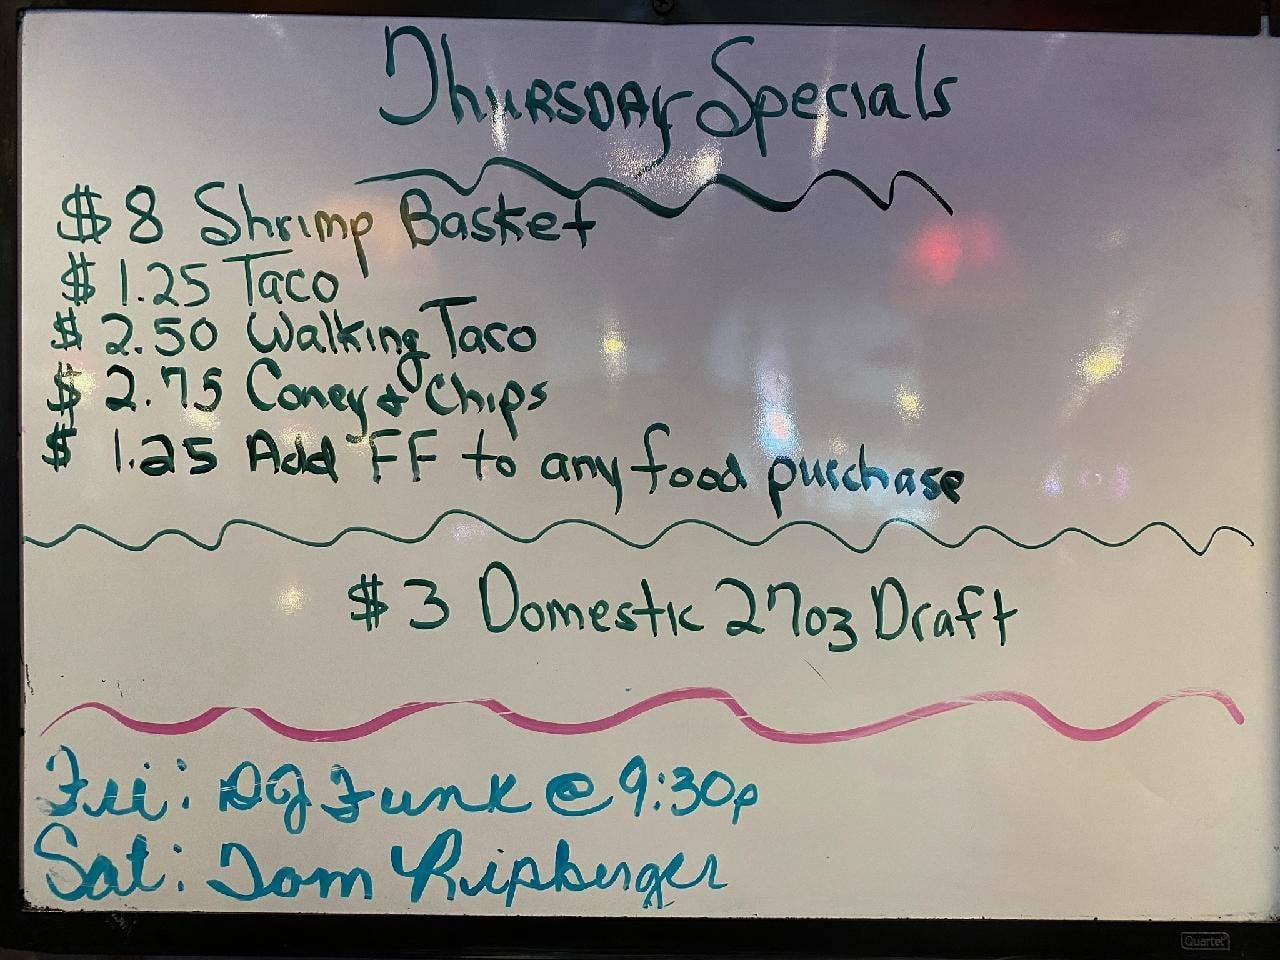 Thursday Specials
$8 Shrimp Basket
$1.25 Taco
$2.50 Walking Taco
$2.75 Coney & Chips
$1.25 Add FF to any food purchase
$3 Domestic 27oz Draft
Fri: DJ Funk @ 9:30p
Sat: Tom Ripberger
Quartet